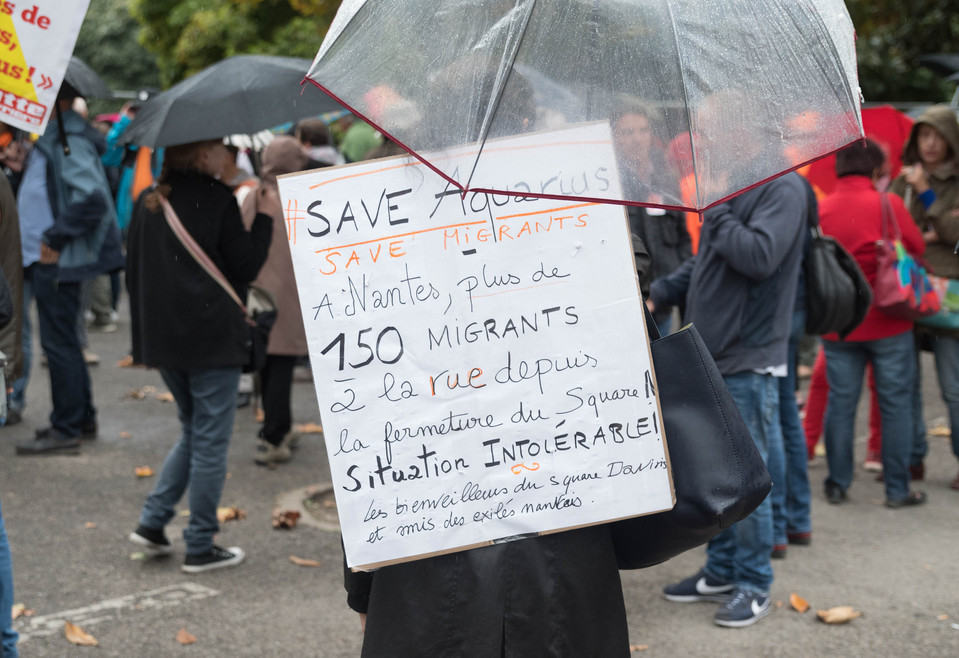 s de
s,
us!»
tte
#SAVE Aquarius
SAVE MIGRANTS
A Nantes, plus de
150 MIGRANTS
à la rue depuis
la fermeture du Square !
Situation INTOLÉRABLE!
Les bienveilleurs du square Daviais
et amis des exilés nantais.